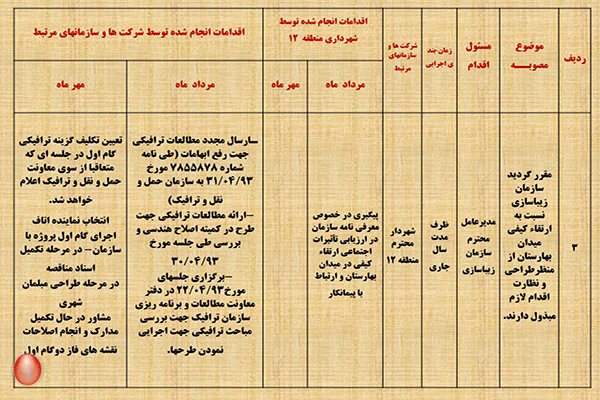 ردیف
موضوع
مصوبـــه
مسئول
اقدام
زمان بند
ی اجرایی
شرکت ها و
سازمانهای
مرتبط
اقدامات انجام شده توسط
شهرداری منطقه ۱۲
اقدامات انجام شده توسط شرکت ها و سازمانهای مرتبط
مرداد ماه
مهر ماه
مرداد ماه
مهر ماه
۳
مقرر گردید
سازمان
زیباسازی
نسبت به
ارتقاء کیفی
میدان
بهارستان از
منظرطراحی
و نظارت
اقدام لازم
مبذول دارند.
مدیرعامل
محترم
سازمان
زیباسازی
ظرف
مدت
سال
جاری
شهردار
محترم
منطقه ۱۲
پیگیری در خصوص
معرفی نامه سازمان
در ارزیابی تأثیرات
اجتماعی ارتقاء
کیفی در میدان
بهارستان و ارتباط
با پیمانکار
سارسال مجدد مطالعات ترافیکی
جهت رفع ابهامات (طی نامه
شماره ۷۸۵۵۸۷۸ مورخ
۳۱/۰۴/۹۳ به سازمان حمل و
نقل و ترافیک)
–ارائه مطالعات ترافیکی جهت
طرح در کمیته اصلاح هندسی و
بررسی طی جلسه مورخ
۳۰/۰۴/۹۳
–برگزاری جلسهای
مورخ۲۲/۰۴/۹۳ در دفتر
معاونت مطالعات و برنامه ریزی
سازمان ترافیک جهت بررسی
مباحث ترافیکی جهت اجرایی
نمودن طرحها.
تعیین تکلیف گزینه ترافیکی
گام اول در جلسه ای که
متعاقبا از سوی معاونت
حمل و نقل و ترافیک اعلام
خواهد شد.
انتخاب نماینده اتاف
اجرای گام اول پروژه با
سازمان– در مرحله تکمیل
اسناد مناقصه
در مرحله طراحی مبلمان
شهری
مشاور در حال تکمیل
مدارک و انجام اصلاحات
نقشه های فاز دوگام اول